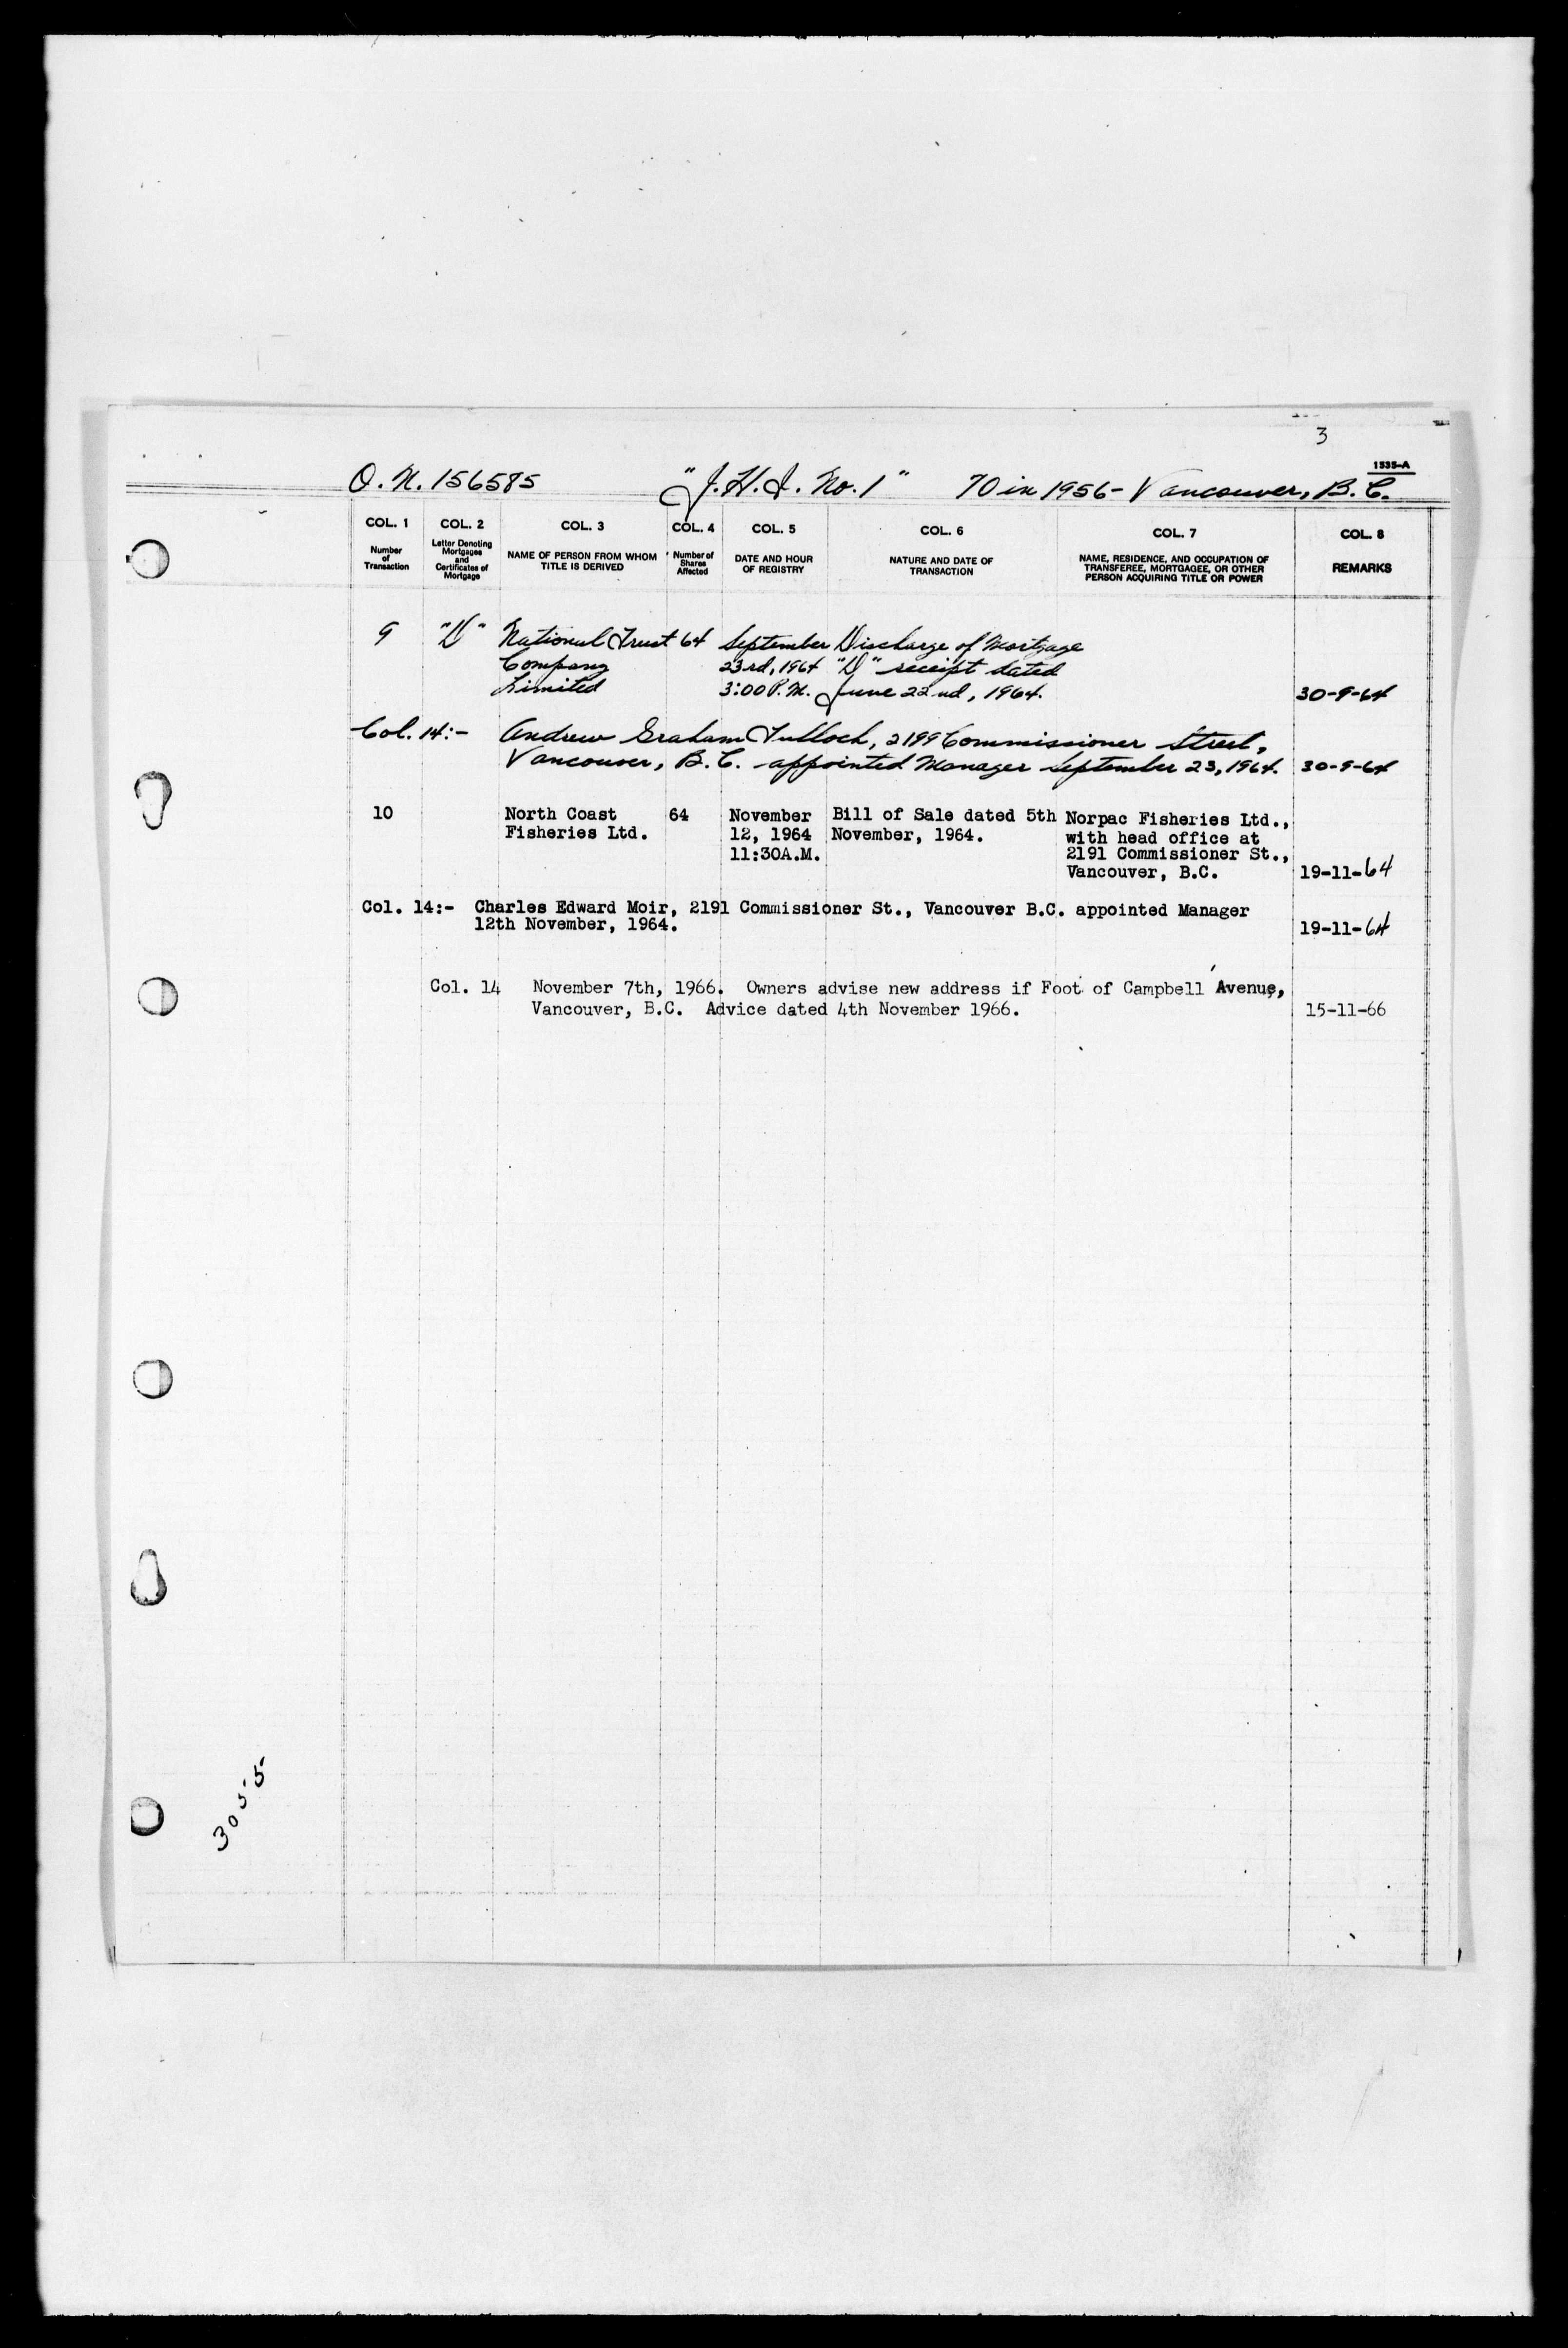 3
1535-A
O. N. 156585 "J. H. I. No. 1" 70 in 1956 - Vancouver, B. C.
COL. 1 COL. 2 COL. 3 COL. 4 COL. 5 COL. 6 COL. 7 COL. 8
Number of Transaction
Letter Denoting Mortgages and Certificates of Mortgage
NAME OF PERSON FROM WHOM TITLE IS DERIVED
Number of Shares Affected
DATE AND HOUR OF REGISTRY
NATURE AND DATE OF TRANSACTION
NAME, RESIDENCE, AND OCCUPATION OF TRANSFEREE, MORTGAGEE, OR OTHER PERSON ACQUIRING TITLE OR POWER
REMARKS
9 "D" National Trust 64 September Discharge of Mortgage
Company 23rd, 1964 "D" receipt dated
Limited 3:00 P.M. June 22nd, 1964. 30-9-64
Col. 14:- Andrew Graham Tulloch, 2199 Commissioner Street,
Vancouver, B.C. - appointed Manager September 23, 1964. 30-9-64
10 North Coast 64 November Bill of Sale dated 5th Norpac Fisheries Ltd.,
Fisheries Ltd. 12, 1964 November, 1964. with head office at
11:30A.M. 2191 Commissioner St.,
Vancouver, B.C. 19-11-64
Col. 14:- Charles Edward Moir, 2191 Commissioner St., Vancouver B.C. appointed Manager
12th November, 1964. 19-11-64
Col. 14 November 7th, 1966. Owners advise new address if Foot of Campbell Avenue,
Vancouver, B.C. Advice dated 4th November 1966. 15-11-66
3055